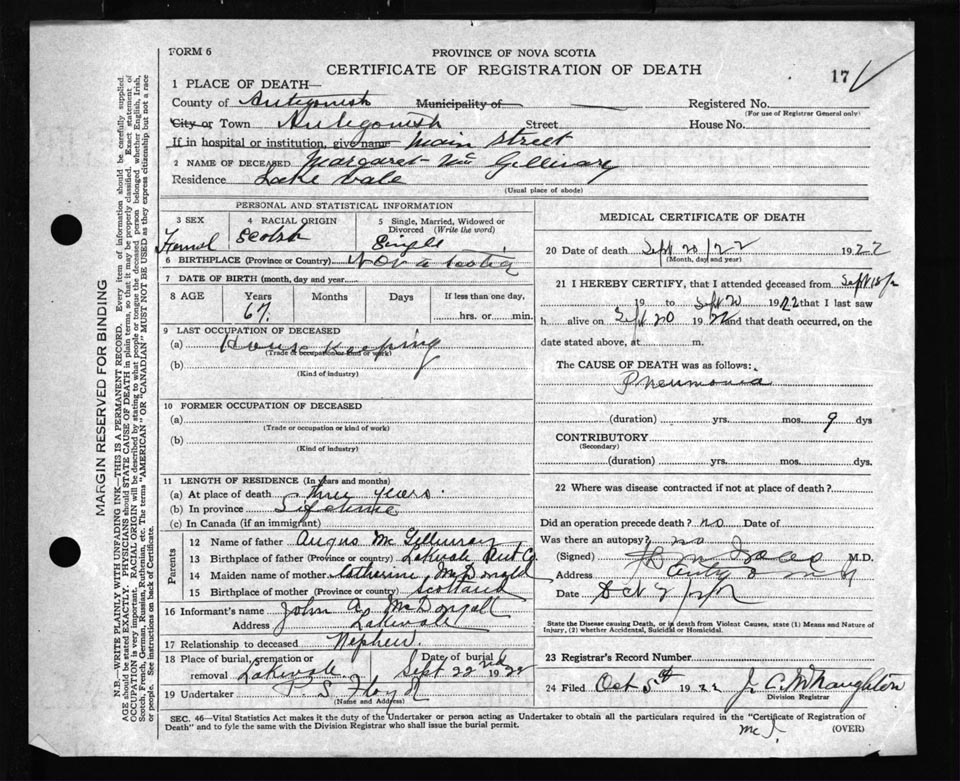 FORM 6
PROVINCE OF NOVA SCOTIA
CERTIFICATE OF REGISTRATION OF DEATH
17
1 PLACE OF DEATH—
County of Antigonish Municipality of Registered No.
(For use of Registrar General only)
City or Town Antigonish Street House No.
If in hospital or institution, give name Main Street
2 NAME OF DECEASED Margaret Mc Gillivary
Residence Lake Vale
(Usual place of abode)
PERSONAL AND STATISTICAL INFORMATION
3 SEX Femal
4 RACIAL ORIGIN Scotch
5 Single, Married, Widowed or Divorced (Write the word) Single
6 BIRTHPLACE (Province or Country) Nova Scotia
7 DATE OF BIRTH (month, day and year)
8 AGE Years Months Days If less than one day,
67 hrs. or min.
9 LAST OCCUPATION OF DECEASED
(a) House Keeping
(Trade or occupation or kind of work)
(b)
(Kind of industry)
10 FORMER OCCUPATION OF DECEASED
(a)
(Trade or occupation or kind of work)
(b)
(Kind of industry)
11 LENGTH OF RESIDENCE (In years and months)
(a) At place of death three years.
(b) In province Lifetime
(c) In Canada (if an immigrant)
Parents
12 Name of father Angus Mc Gillivray
13 Birthplace of father (Province or country) Lakevale Ant Co
14 Maiden name of mother Catherine McDonald
15 Birthplace of mother (Province or country) Scotland
16 Informant's name John A. McDougall
Address Lakevale
17 Relationship to deceased Nephew
18 Place of burial, cremation or removal Lakevale Date of burial Sept 22nd 1922
19 Undertaker P S Floyd
(Name and Address)
MEDICAL CERTIFICATE OF DEATH
20 Date of death Sept 20/22 1922
(Month, day and year)
21 I HEREBY CERTIFY, that I attended deceased from Sept
19 to Sept 20 1922 that I last saw
h alive on Sept 20 1922 and that death occurred, on
date stated above, at m.
The CAUSE OF DEATH was as follows:
Pneumonia
(duration) yrs. mos. 9 dys
CONTRIBUTORY
(Secondary)
(duration) yrs. mos. dys.
22 Where was disease contracted if not at place of death?
Did an operation precede death? no Date of
Was there an autopsy? no
(Signed) M.D.
Address
Date
State the Disease causing Death, or in death from Violent Causes, state (1) Means and Nature of Injury, (2) whether Accidental, Suicidal or Homicidal.
23 Registrar's Record Number
24 Filed Oct 5th 1922 J. C. McNaughton
Division Registrar
SEC. 46—Vital Statistics Act makes it the duty of the Undertaker or person acting as Undertaker to obtain all the particulars required in the "Certificate of Registration of
Death" and to fyle the same with the Division Registrar who shall issue the burial permit.
(OVER)
MARGIN RESERVED FOR BINDING
N.B.—WRITE PLAINLY WITH UNFADING INK—THIS IS A PERMANENT RECORD. Every item of information should be carefully supplied.
AGE should be stated EXACTLY. PHYSICIANS should STATE CAUSE OF DEATH in plain terms, so that it may be properly classified. Exact statement of
OCCUPATION is very important. RACIAL ORIGIN will be described by stating to what people or tongue the deceased person belonged whether English, Irish,
Scotch, French, German, Russian, Ruthenian, etc. The terms "AMERICAN" OR "CANADIAN" MUST NOT BE USED as they express citizenship but not a race
or people. See instructions on back of Certificate.